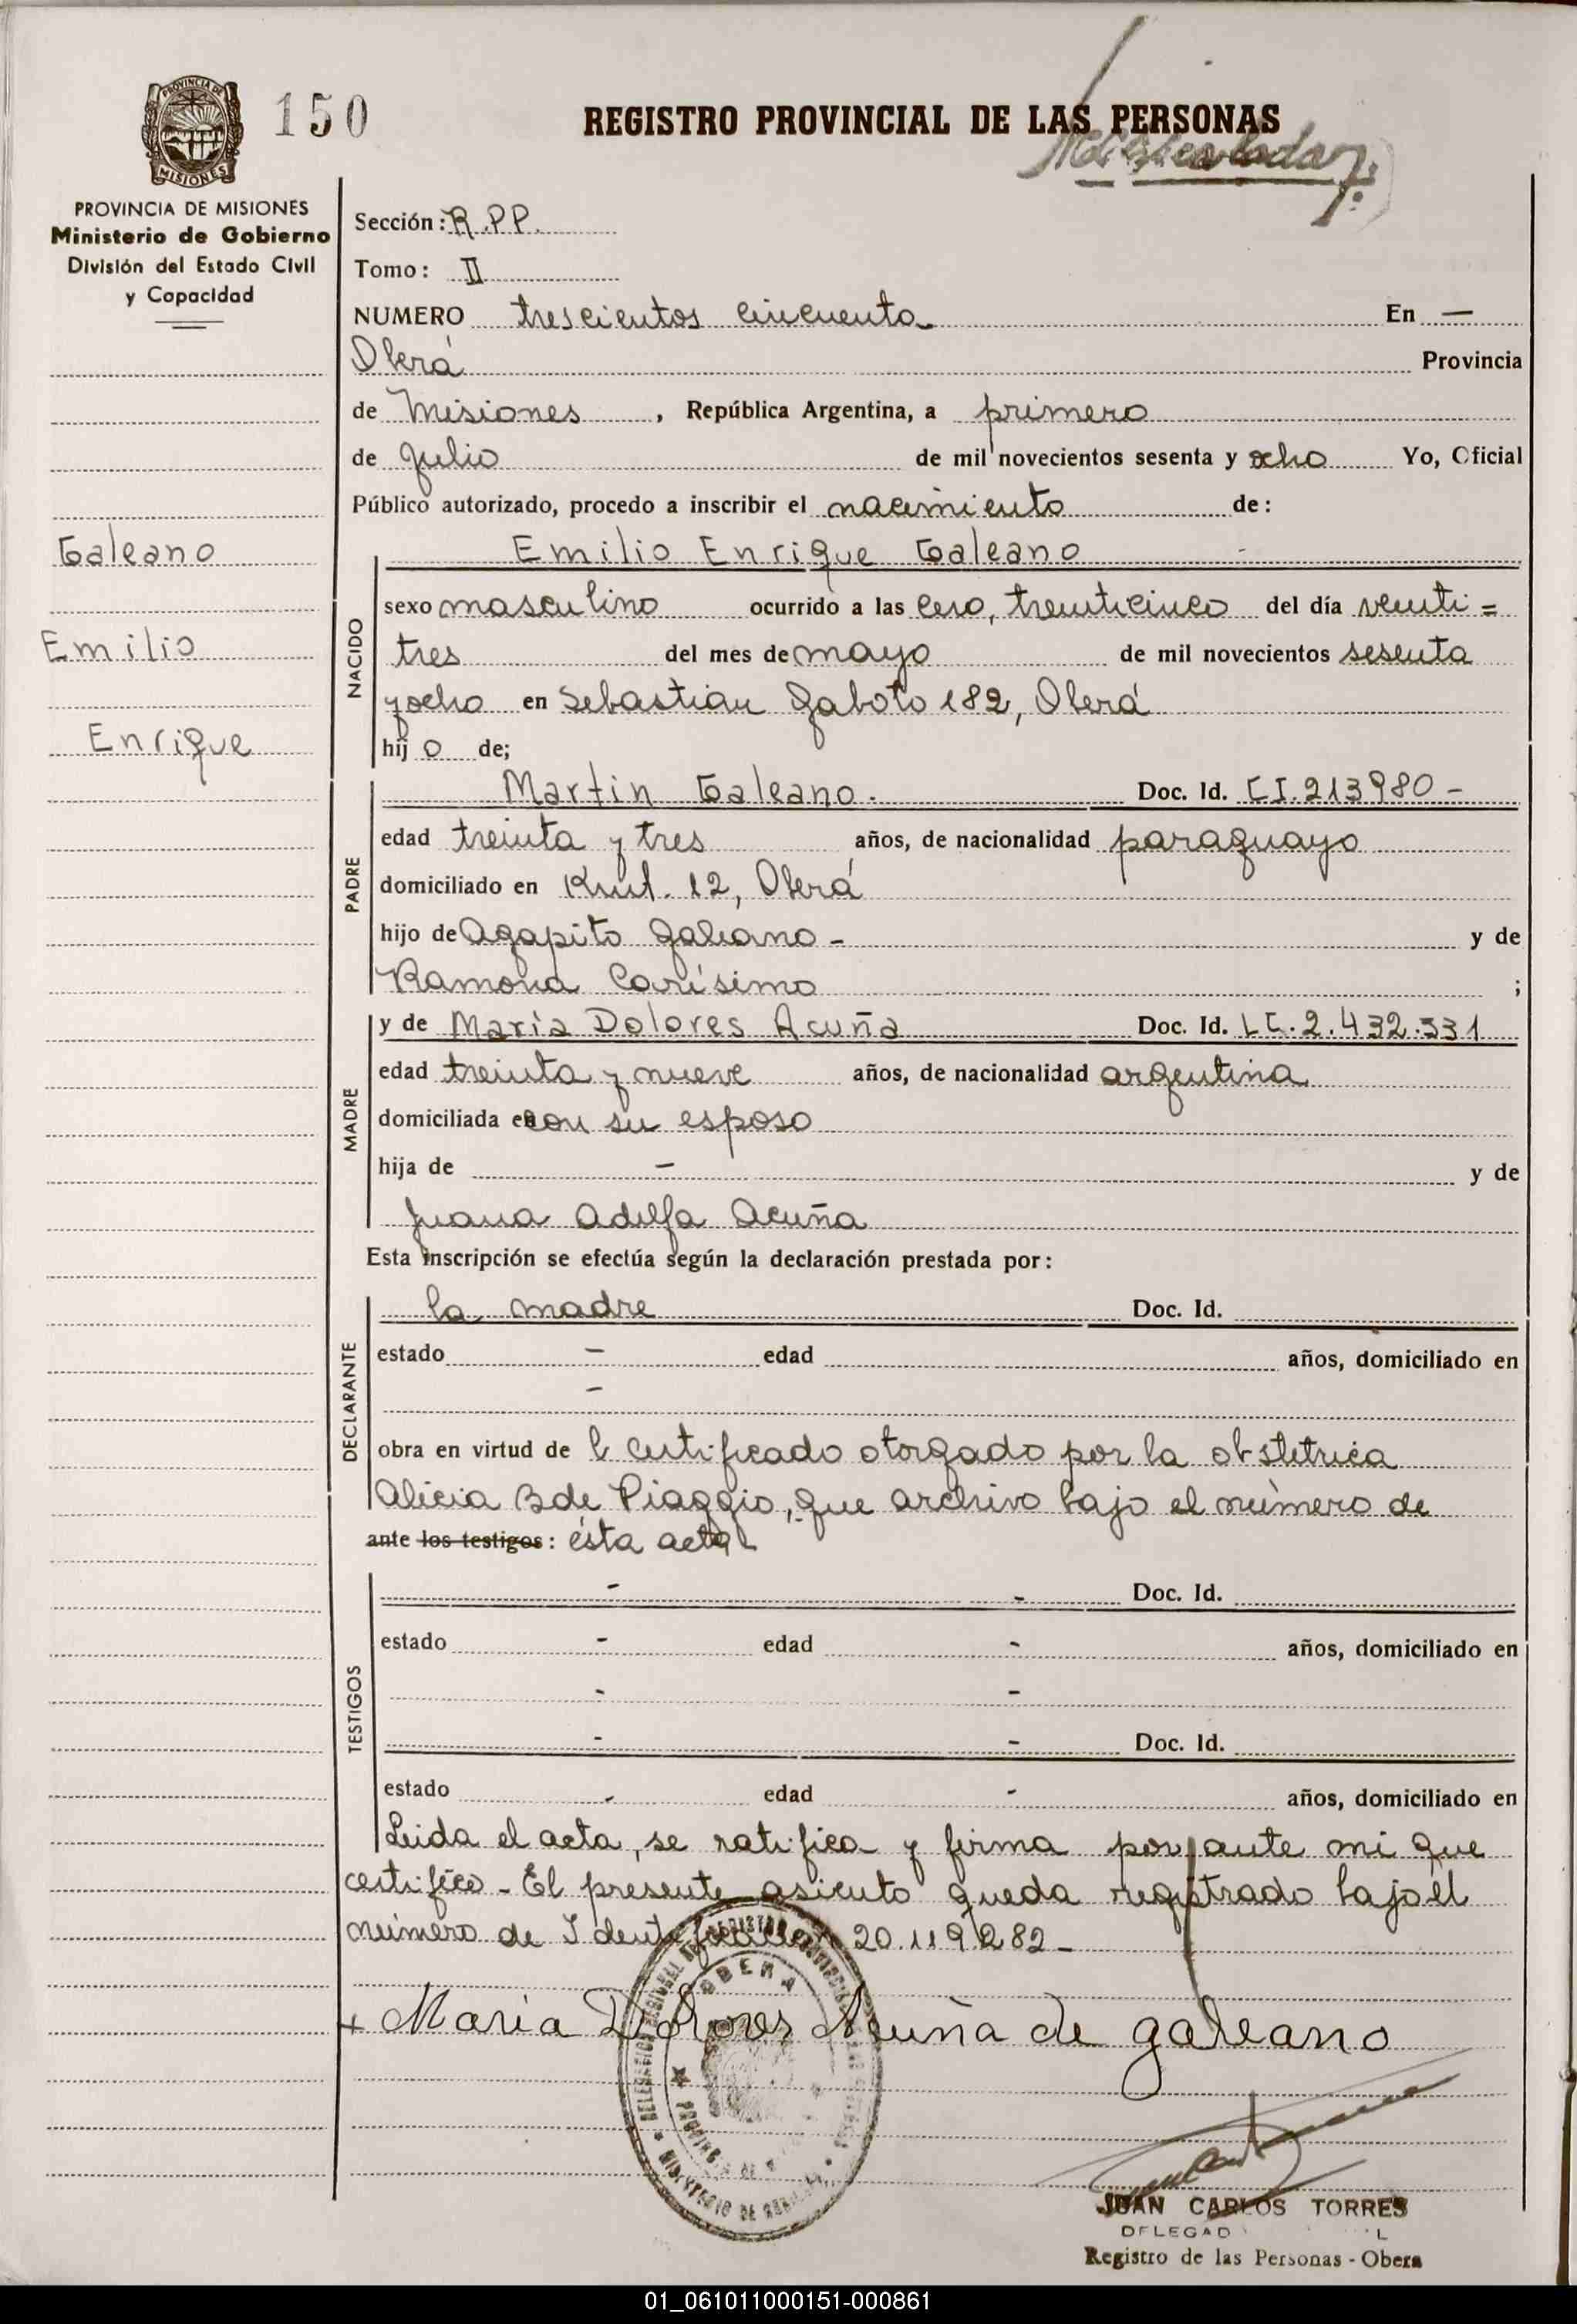 PROVINCIA DE
MISIONES
150
REGISTRO PROVINCIAL DE LAS PERSONAS
PROVINCIA DE MISIONES
Ministerio de Gobierno
División del Estado Civil
y Capacidad
Galeano
Emilio
Enrique
Sección: R.P.P.
Tomo: II
NUMERO trescientos cincuenta En —
Oberá Provincia
de Misiones, República Argentina, a primero
de Julio de mil novecientos sesenta y ocho Yo, Oficial
Público autorizado, procedo a inscribir el nacimiento de:
Emilio Enrique Galeano
NACIDO
sexo masculino ocurrido a las cero, treinticinco del día veinti=
tres del mes de mayo de mil novecientos sesenta
y ocho en Sebastián Gaboto 182, Oberá
hij o de;
PADRE
Martin Galeano. Doc. Id. C.I. 213980 -
edad treinta y tres años, de nacionalidad paraguayo
domiciliado en Kml. 12, Oberá
hijo de Agapito Galeano - y de
Ramona Carísimo ;
MADRE
y de María Dolores Acuña Doc. Id. L.C. 2.432.331
edad treinta y nueve años, de nacionalidad argentina
domiciliada en con su esposo
hija de — y de
Juana Adelfa Acuña
Esta inscripción se efectúa según la declaración prestada por:
DECLARANTE
la madre Doc. Id.
estado — edad años, domiciliado en
—
obra en virtud de l certificado otorgado por la obstetrica
Alicia B de Piaggio, que archivo bajo el número de
ante los testigos: ésta acta
TESTIGOS
- - Doc. Id.
estado - edad - años, domiciliado en
- -
- - Doc. Id.
estado - edad - años, domiciliado en
Leida el acta, se ratifica y firma por ante mi que
certifico - El presente asiento queda registrado bajo el
número de Identificación 20.119.282 -
+ María Dolores Acuña de galeano
OBERA
JUAN CARLOS TORRES
DELEGAD L
Registro de las Personas - Obera
01_061011000151-000861